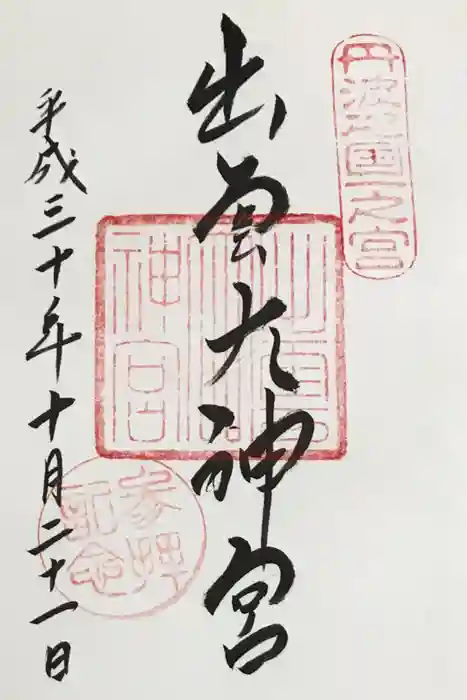 丹波國一之宮
出雲大神宮
平成三十年十月二十一日
参拝
記念